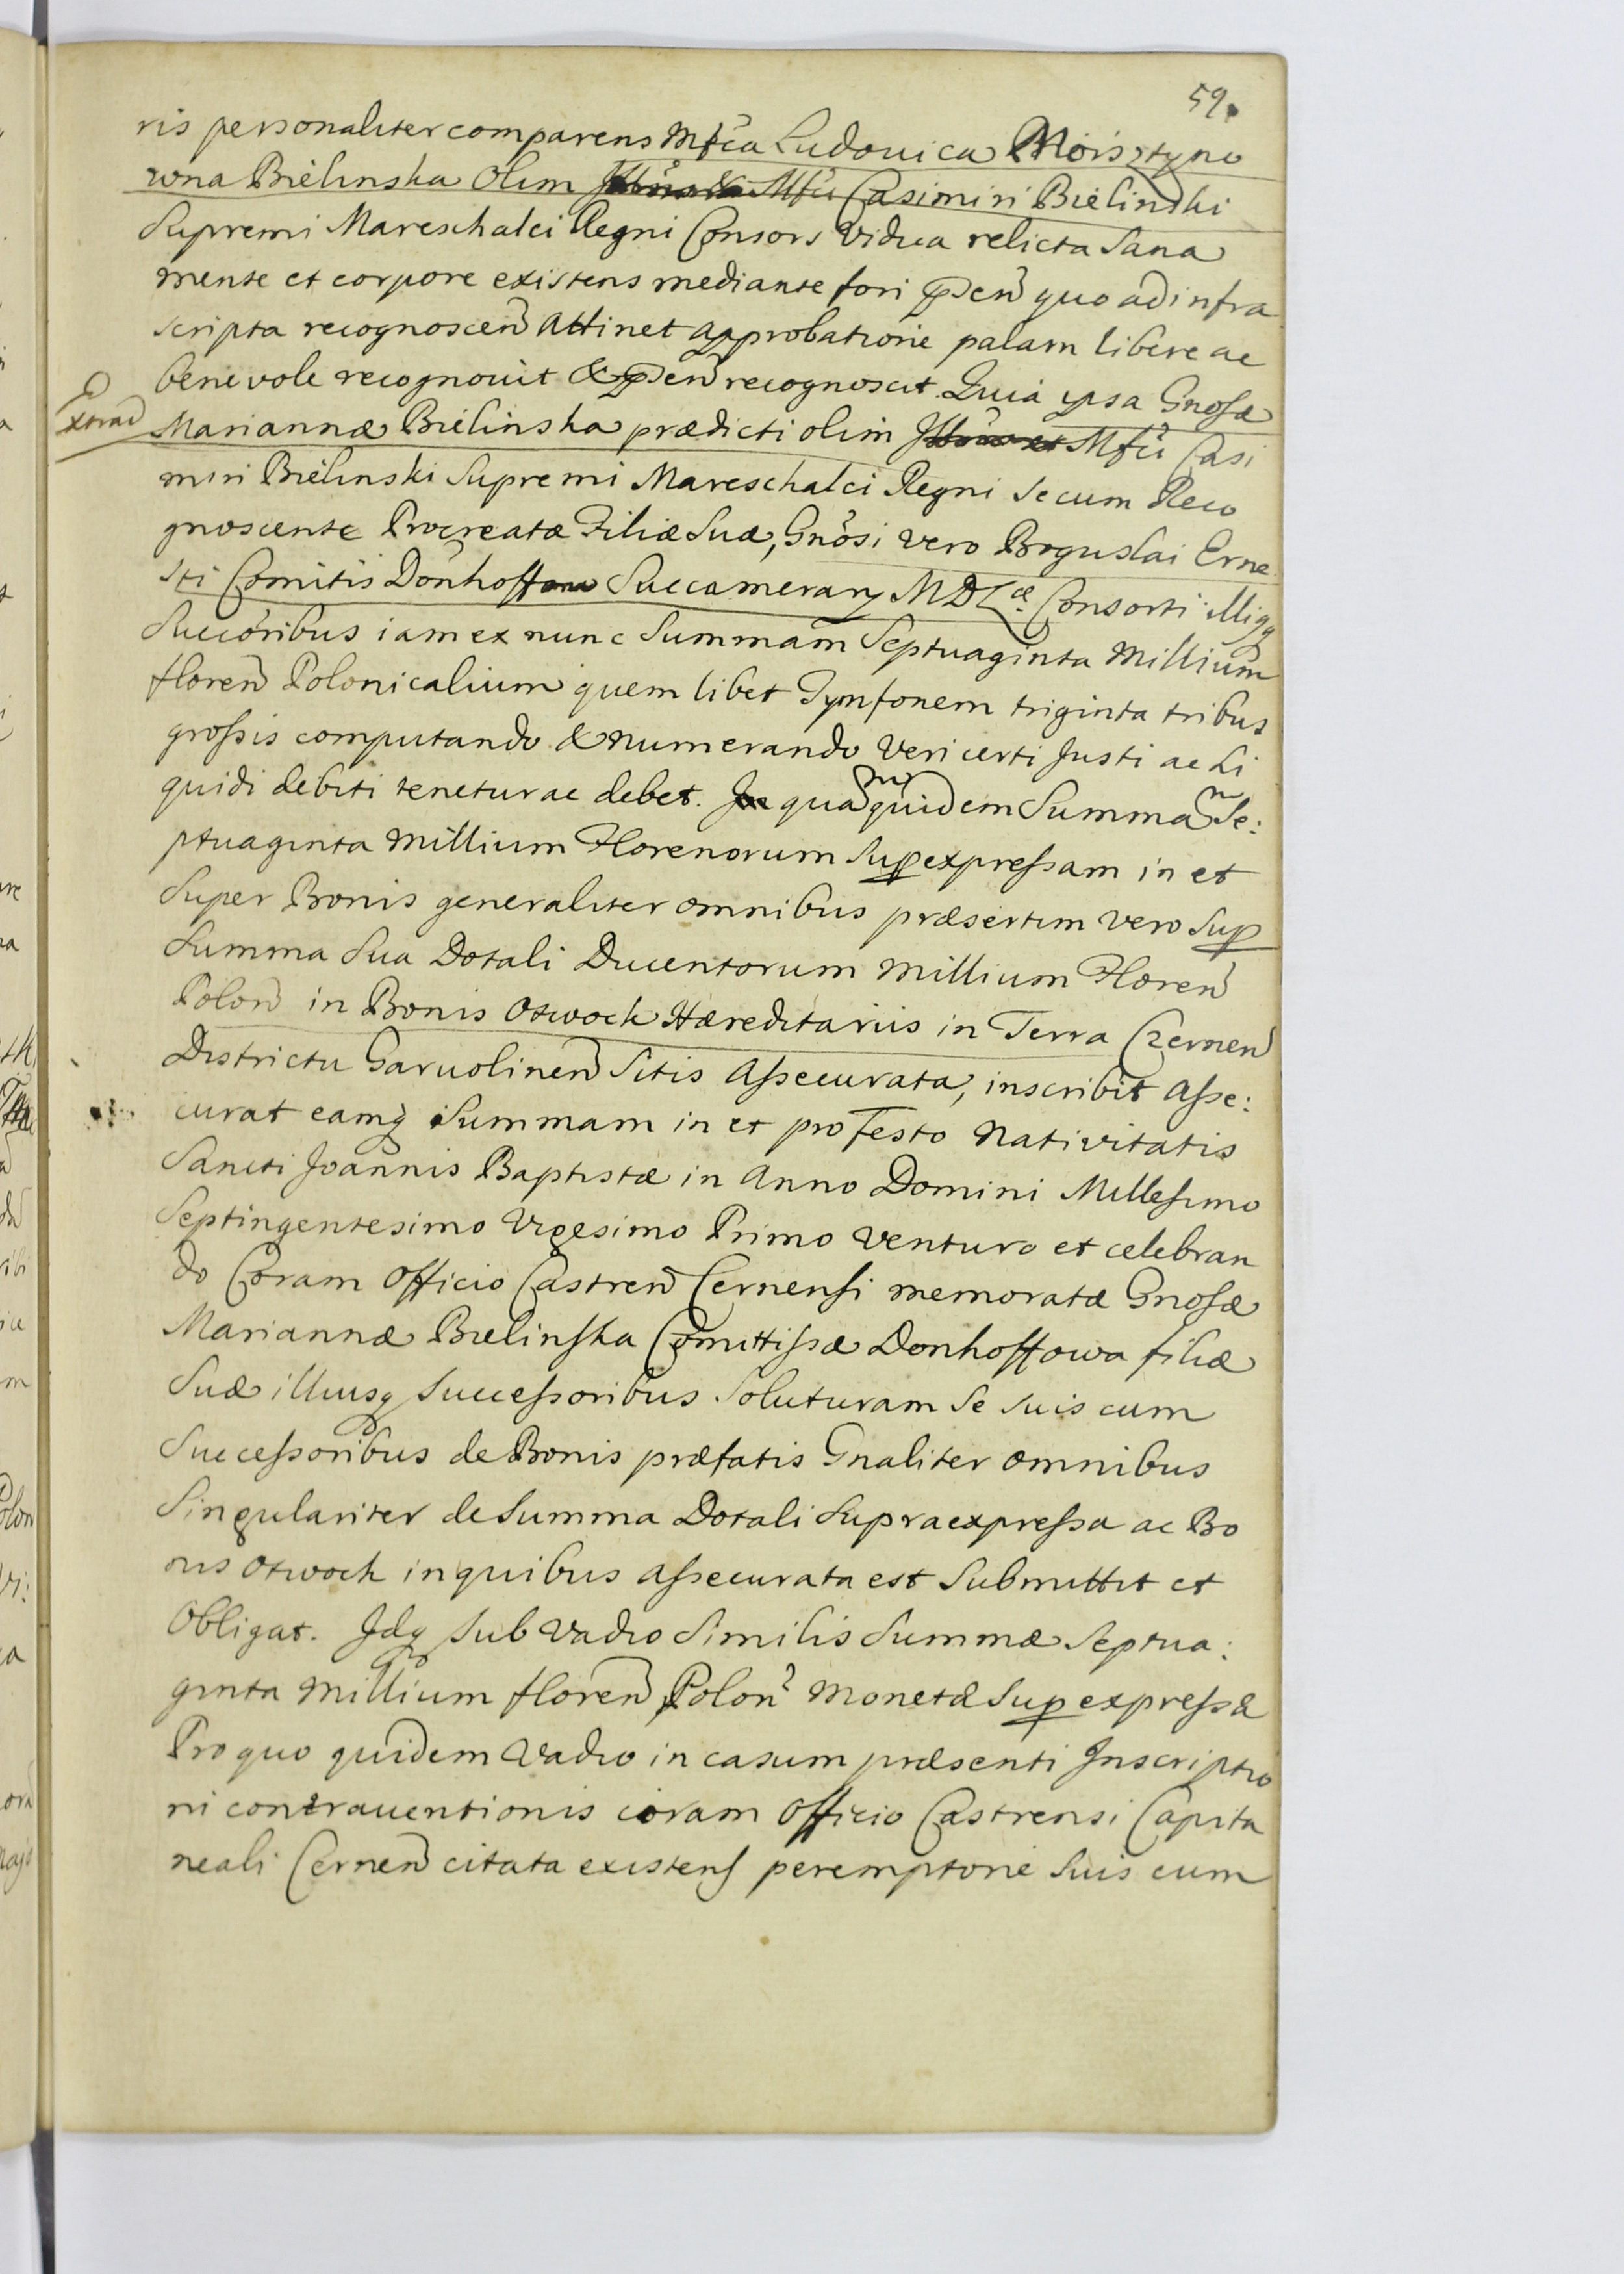 59.
ris personaliter comparens Mfca Ludouica Moisztyno
wna Bielinska Olim Mfci Casimiri Bielinski
Supremi Mareschalci Regni Consors Vidua relicta Sana
mente et corpore existens mediante fori pñ quo ad infra
scripta recognoscen Attinet approbatione palam libere ac
benevole recognouit & pñ recognoscit. Quia ipsa Gnosæ
Extrad
Mariannæ Bielinska prædicti olim Mfci Casi
miri Bielinski Supremi Mareschalci Regni secum Reco
gnoscente Procreatæ Filiæ Suæ, Gnosi vero Boguslai Erne
sti Comitis Donhoff Succamerary MDLæ. Consorti illiqq
Succoribus iam ex nunc Summam Septuaginta Millium
floren Polonicalium quem libet Tymfonem triginta tribus
grossis computando & numerando Veri certi Justi ac Li
quidi debiti tenetur ac debet. quam quidem Summam Se:
ptuaginta Millium Florenorum Supexpressam in et
Super Bonis generaliter omnibus præsertim vero Sup
Summa Sua Dotali Ducentorum Millium Floren
Polon in Bonis Otwock Hæreditariis in Terra Czernen
Districtu Garuolinen Sitis Assecurata, inscribit Asse:
curat eamq Summam in et pro Festo Nativitatis
Sancti Joannis Baptistæ in Anno Domini Millesimo
Septingentesimo Vigesimo Primo venturo et celebran
do Coram Officio Castren Cernensi memoratæ Gnosæ
Mariannæ Bielinska Comittissæ Donhoffowa filiæ
Suæ illiusq Successoribus Soluturam Se Suis cum
Successoribus de Bonis præfatis Gnaliter omnibus
Singulariter de Summa Dotali Supraexpressa ac Bo
nis Otwock in quibus assecurata est Submittit et
Obligat. Idq Sub Vadio Similis Summæ Septua:
ginta Millium floren Polon Monetæ Supexpressæ
Pro quo quidem Vadio in casum præsenti Inscriptio
ni contrauentionis coram Officio Castrensi Capita
neali Cernen citata existens peremptorie Suis cum